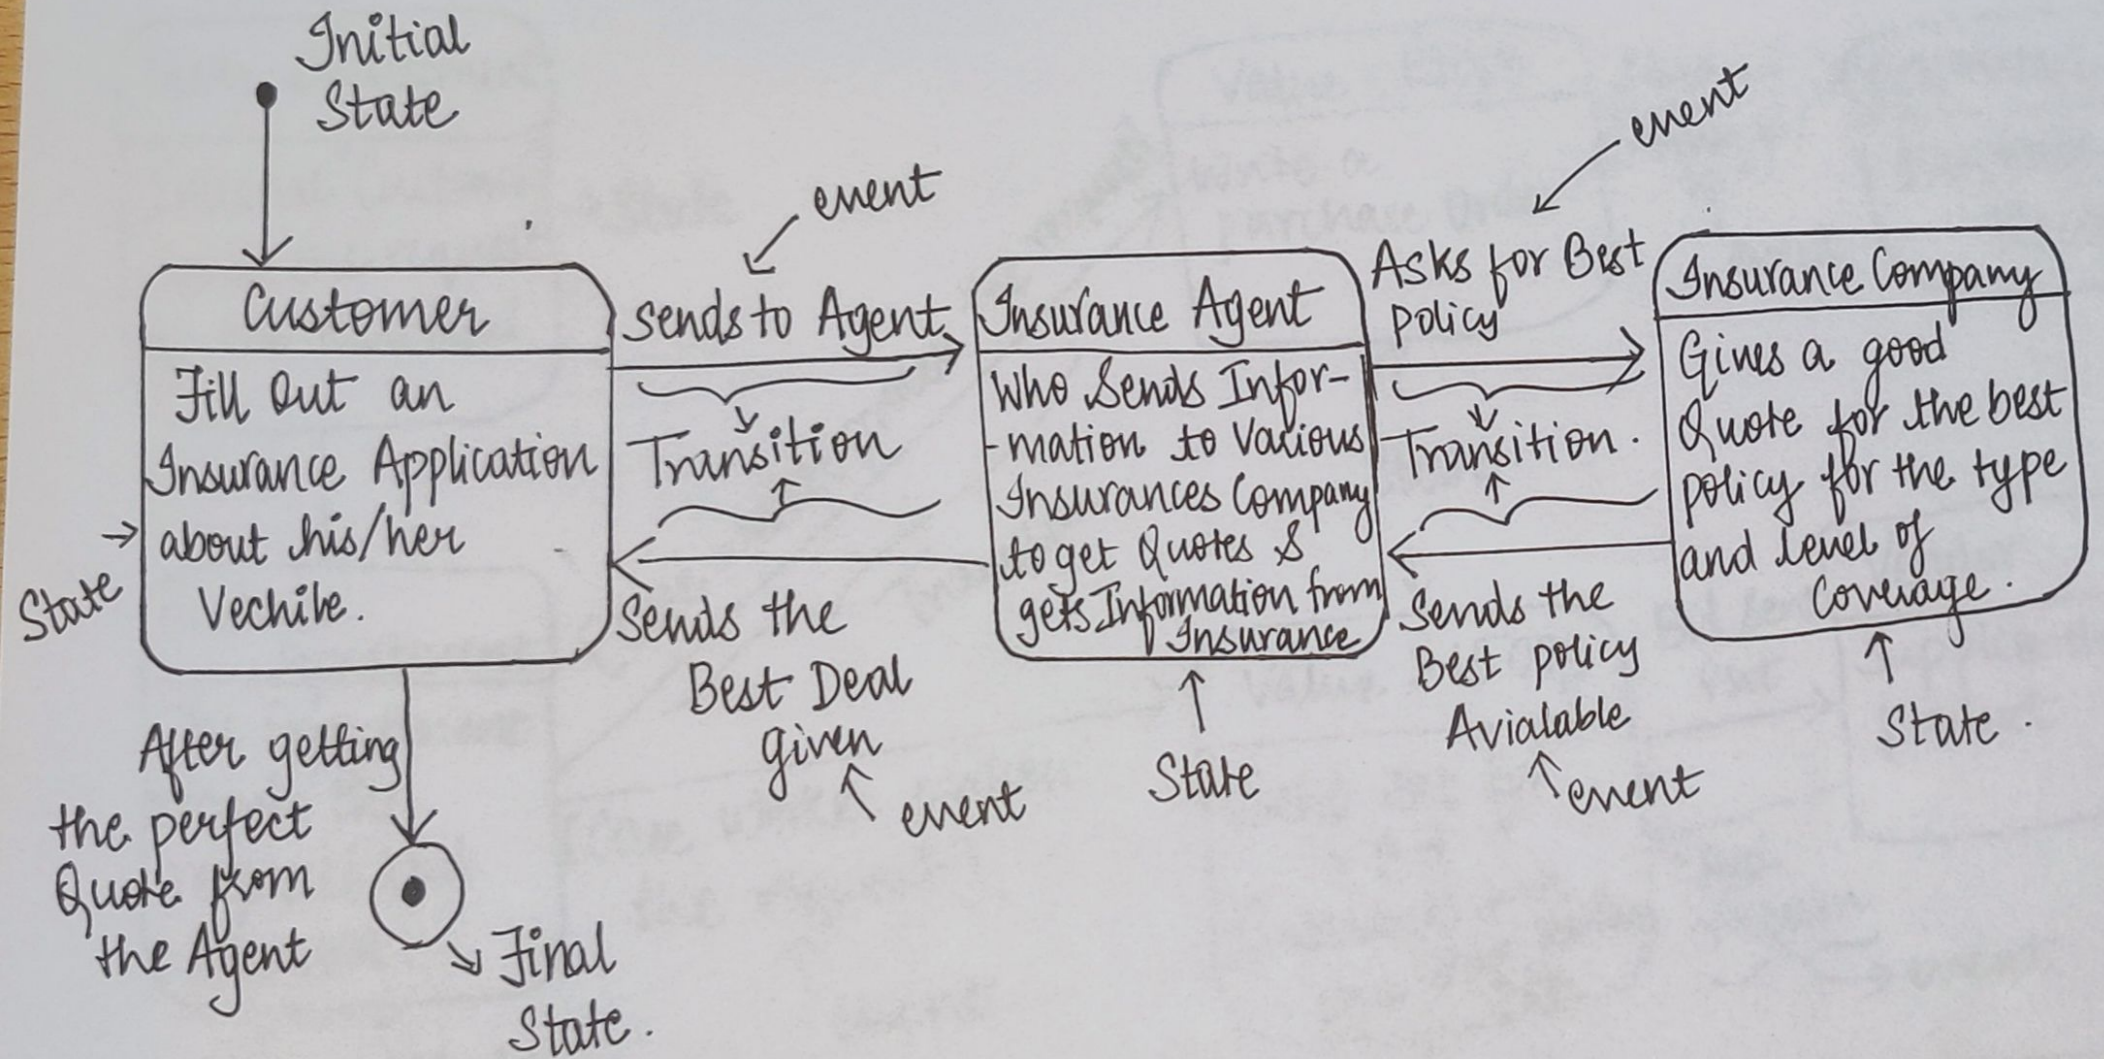 Initial
State
event
event
Customer
Fill Out an
Insurance Application
about his/her
Vechile.
State
sends to Agent
Transition
Sends the
Best Deal
given
event
Insurance Agent
Who Sends Infor-
-mation to Various
Insurances Company
to get Quotes &
gets Information from
Insurance
State
Asks for Best
policy
Transition.
Sends the
Best policy
Avialable
event
Insurance Company
Gives a good
Quote for the best
policy for the type
and level of
Coverage.
State.
After getting
the perfect
Quote from
the Agent
Final
State.